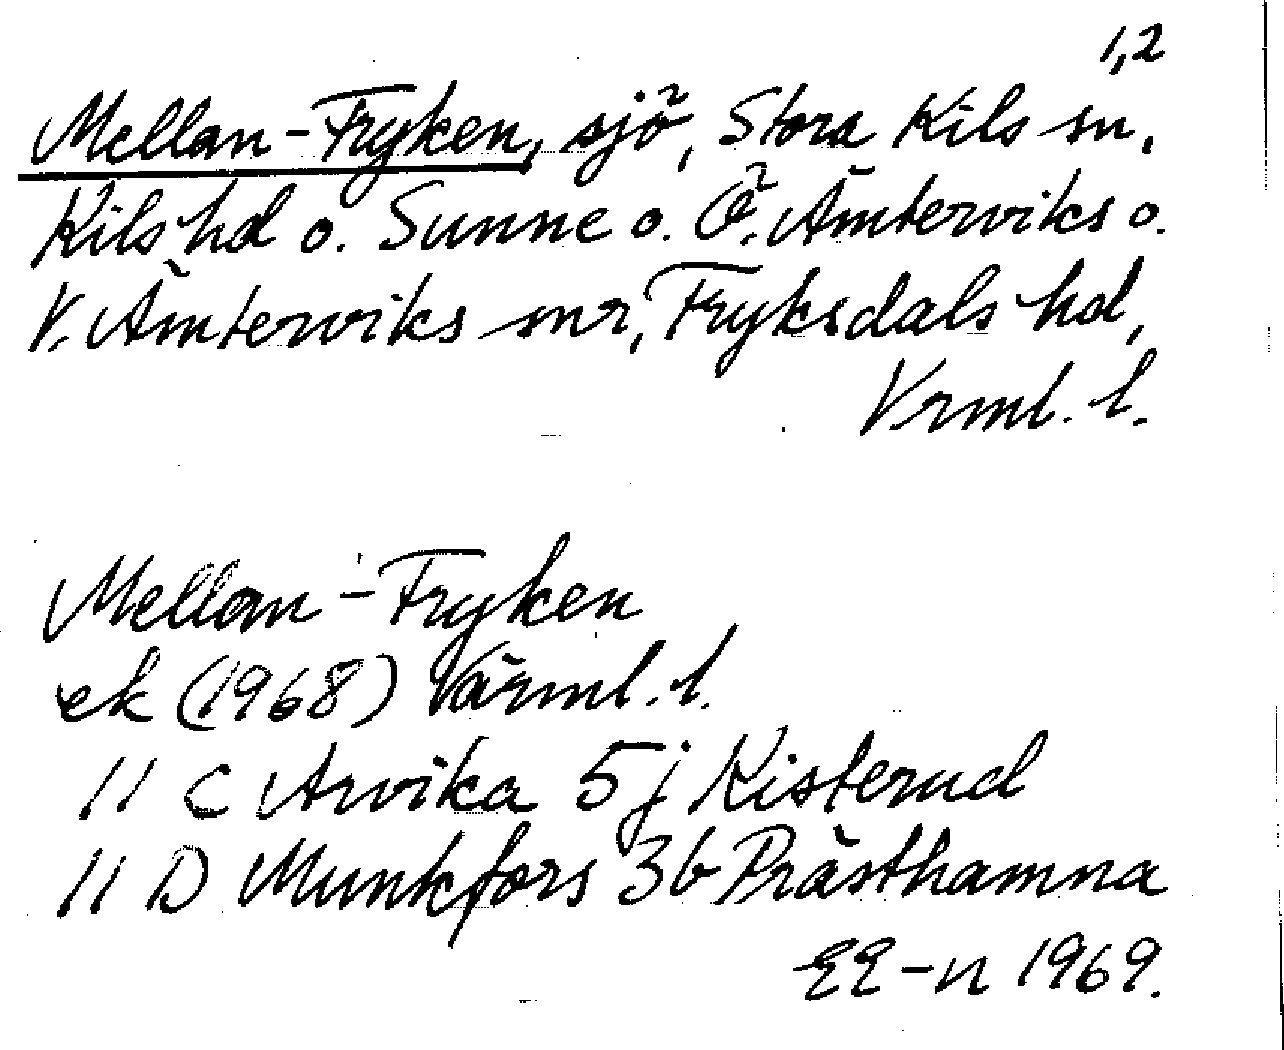 1,2
Mellan-Fryken, sjö, Stora Kils sn,
Kils hd o. Sunne o. Ö. Ämterviks o.
V. Ämterviks snr, Fryksdals hd,
Vrml. l.
Mellan-Fryken
ek (1968) Värml. l.
11 C Arvika 5j Kisterud
11 D Munkfors 3b Prästhamna
EE-n 1969.